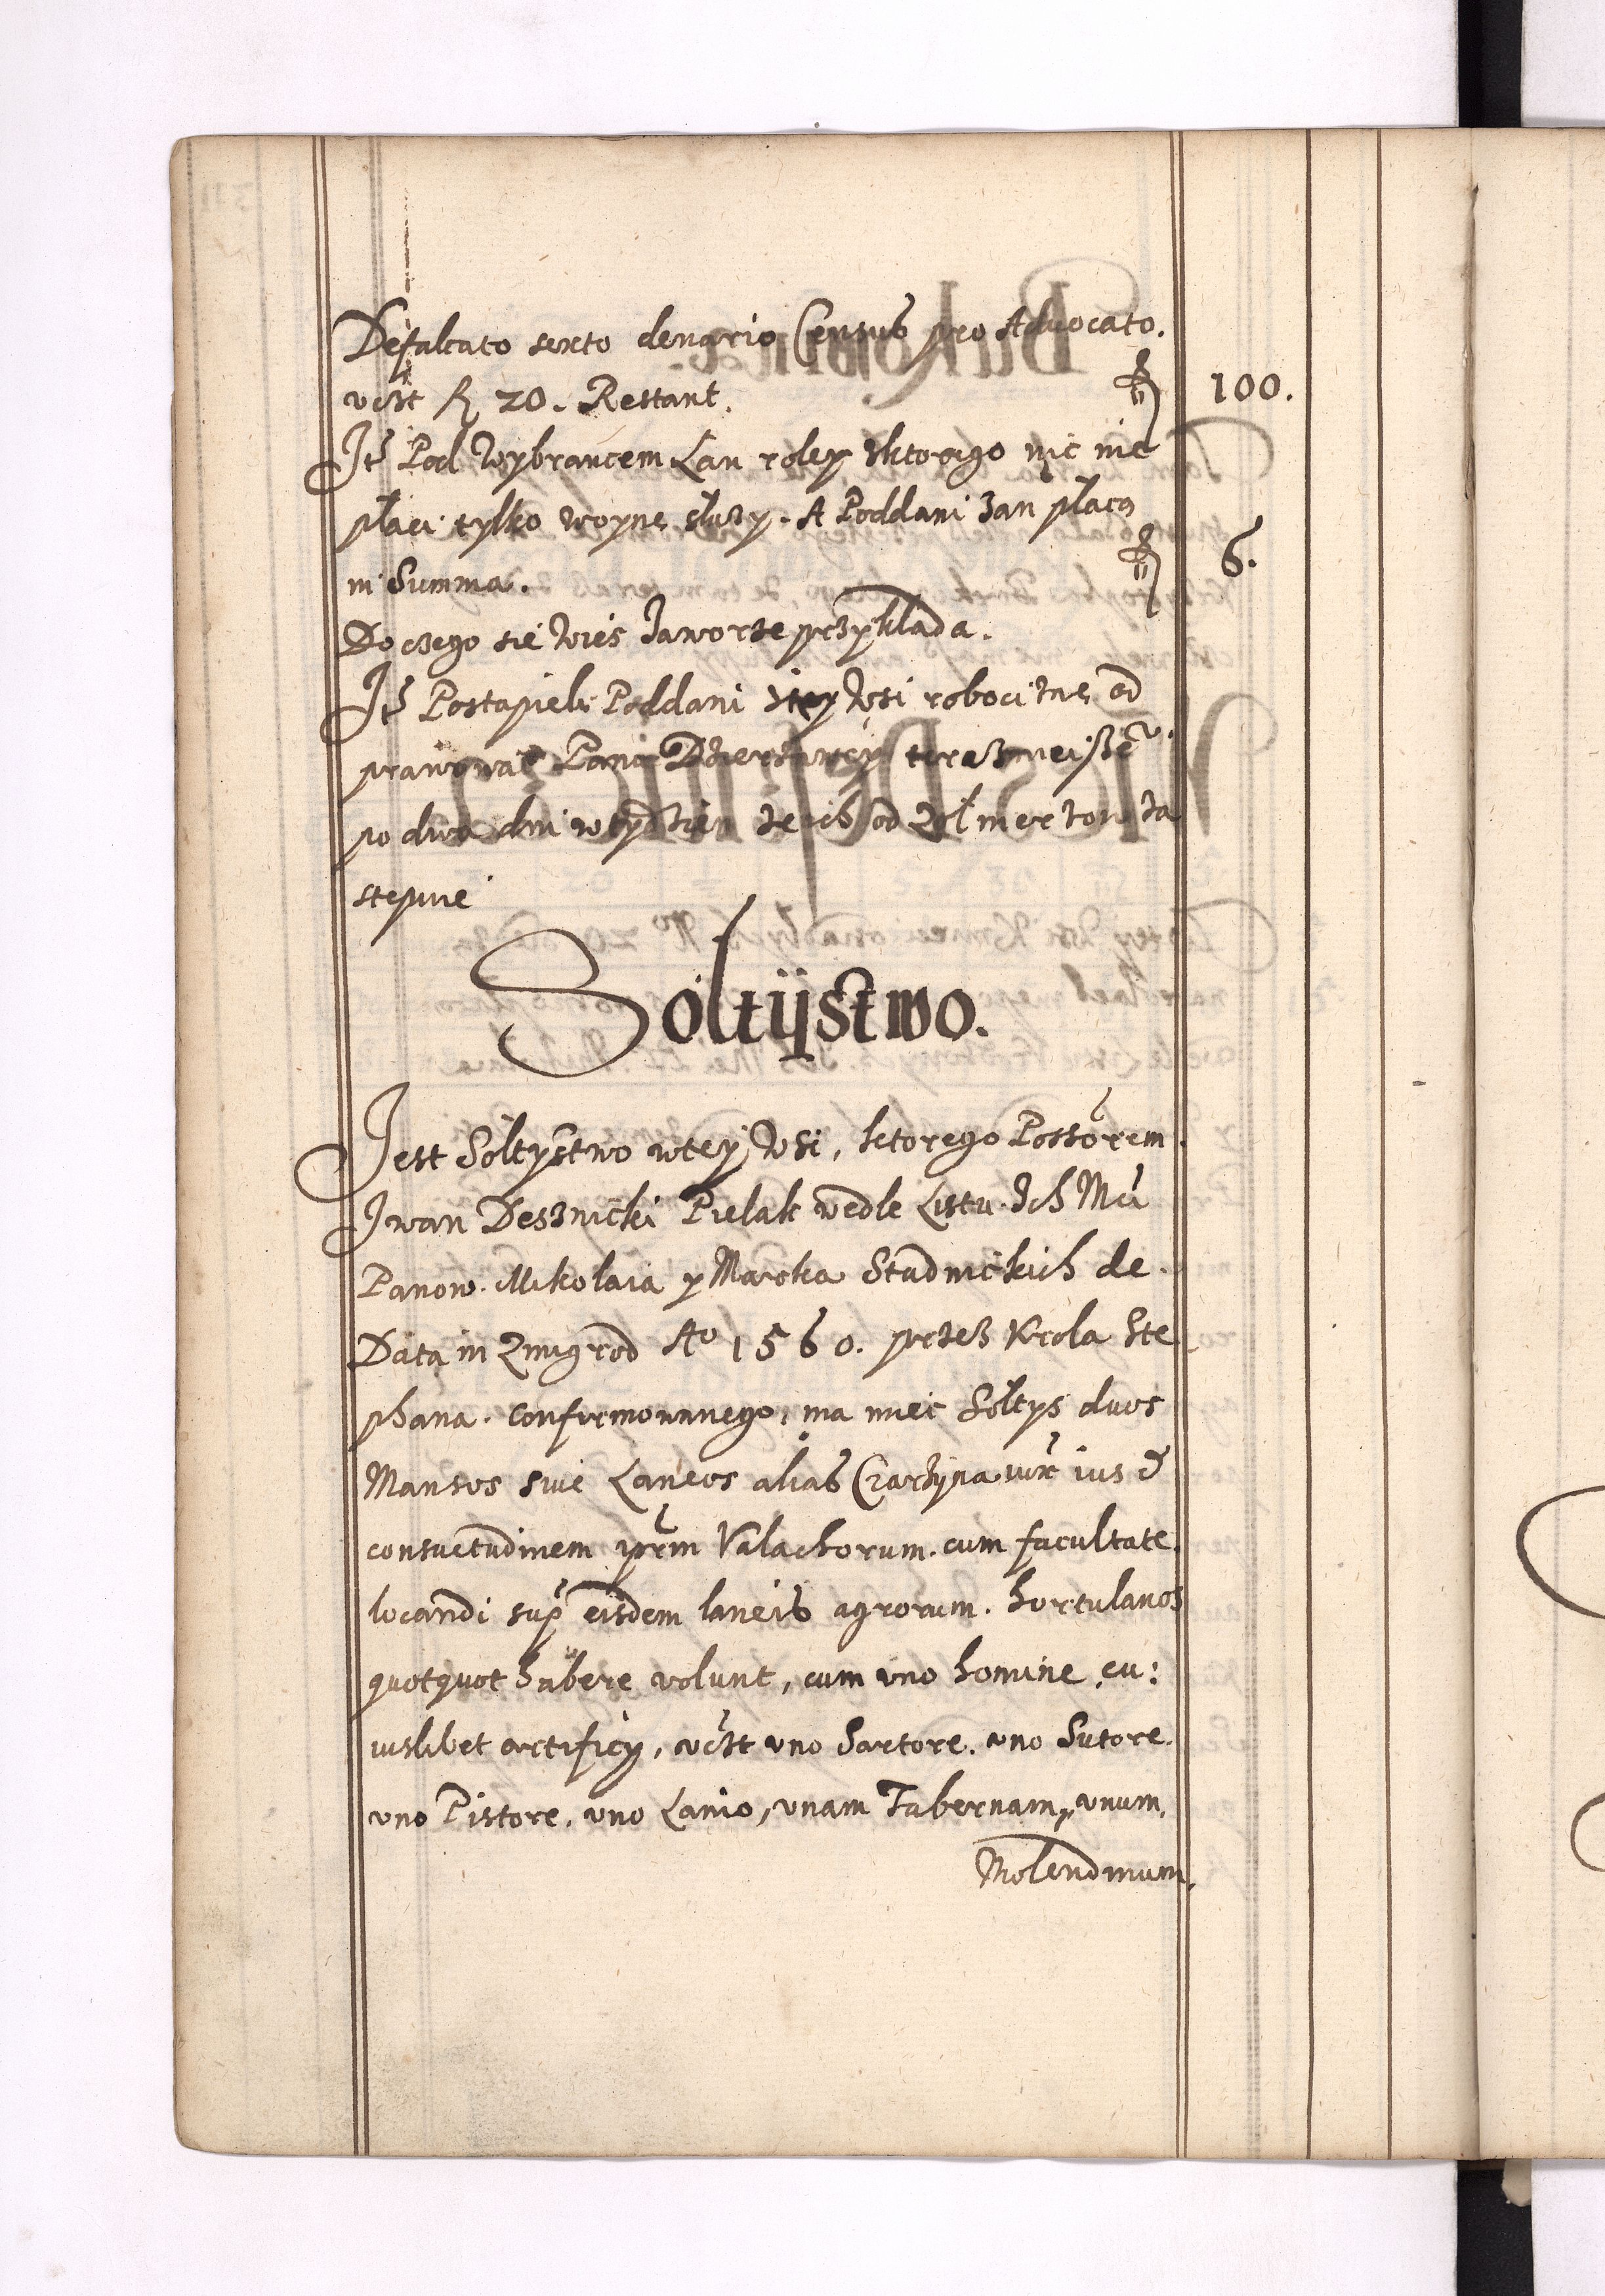 Defalcato sexto denario Census pro Advocato.
vdst fl 20. Restant. fl 100.
Jt Pod Wybrancem Łan roley Zktorego nic nie
płaci tylko woynę służy. A Poddani zań płacą
in Summa. fl 6.
Do czego się Wies Jaworze przykłada.
Jt Postąpieli Poddani ztey Wsi robociznę od
prawować Panu Dzierżawcy teraznieisze
po dwa dni w tydzien ze
stepnie
Sołtijstwo.
Jest Sołtystwo wtey Wsi, ktorego Possorem
Jwan Desznicki Pielak vedle Listu Jch Mci
Panow. Mikołaia y Marcka Stadnickich de.
Data in Zmigrod Ao 1560. przez Krola Ste
phana. confirmowanego, ma miec Sołtys duos
Mansos siue Laneos alias Czarzyna iux ius et
consuetudinem iprm Valachorum. cum facultate.
locandi sup eisdem laneis agrorum. hortulanos
quotquot habere volunt, cum vno homine, cu:
iuslibet artificÿ, vdst vno Sartore. vno Sutore.
vno Pistore, vno Lanio, vnam Tabernam, vnum.
Molendinum.